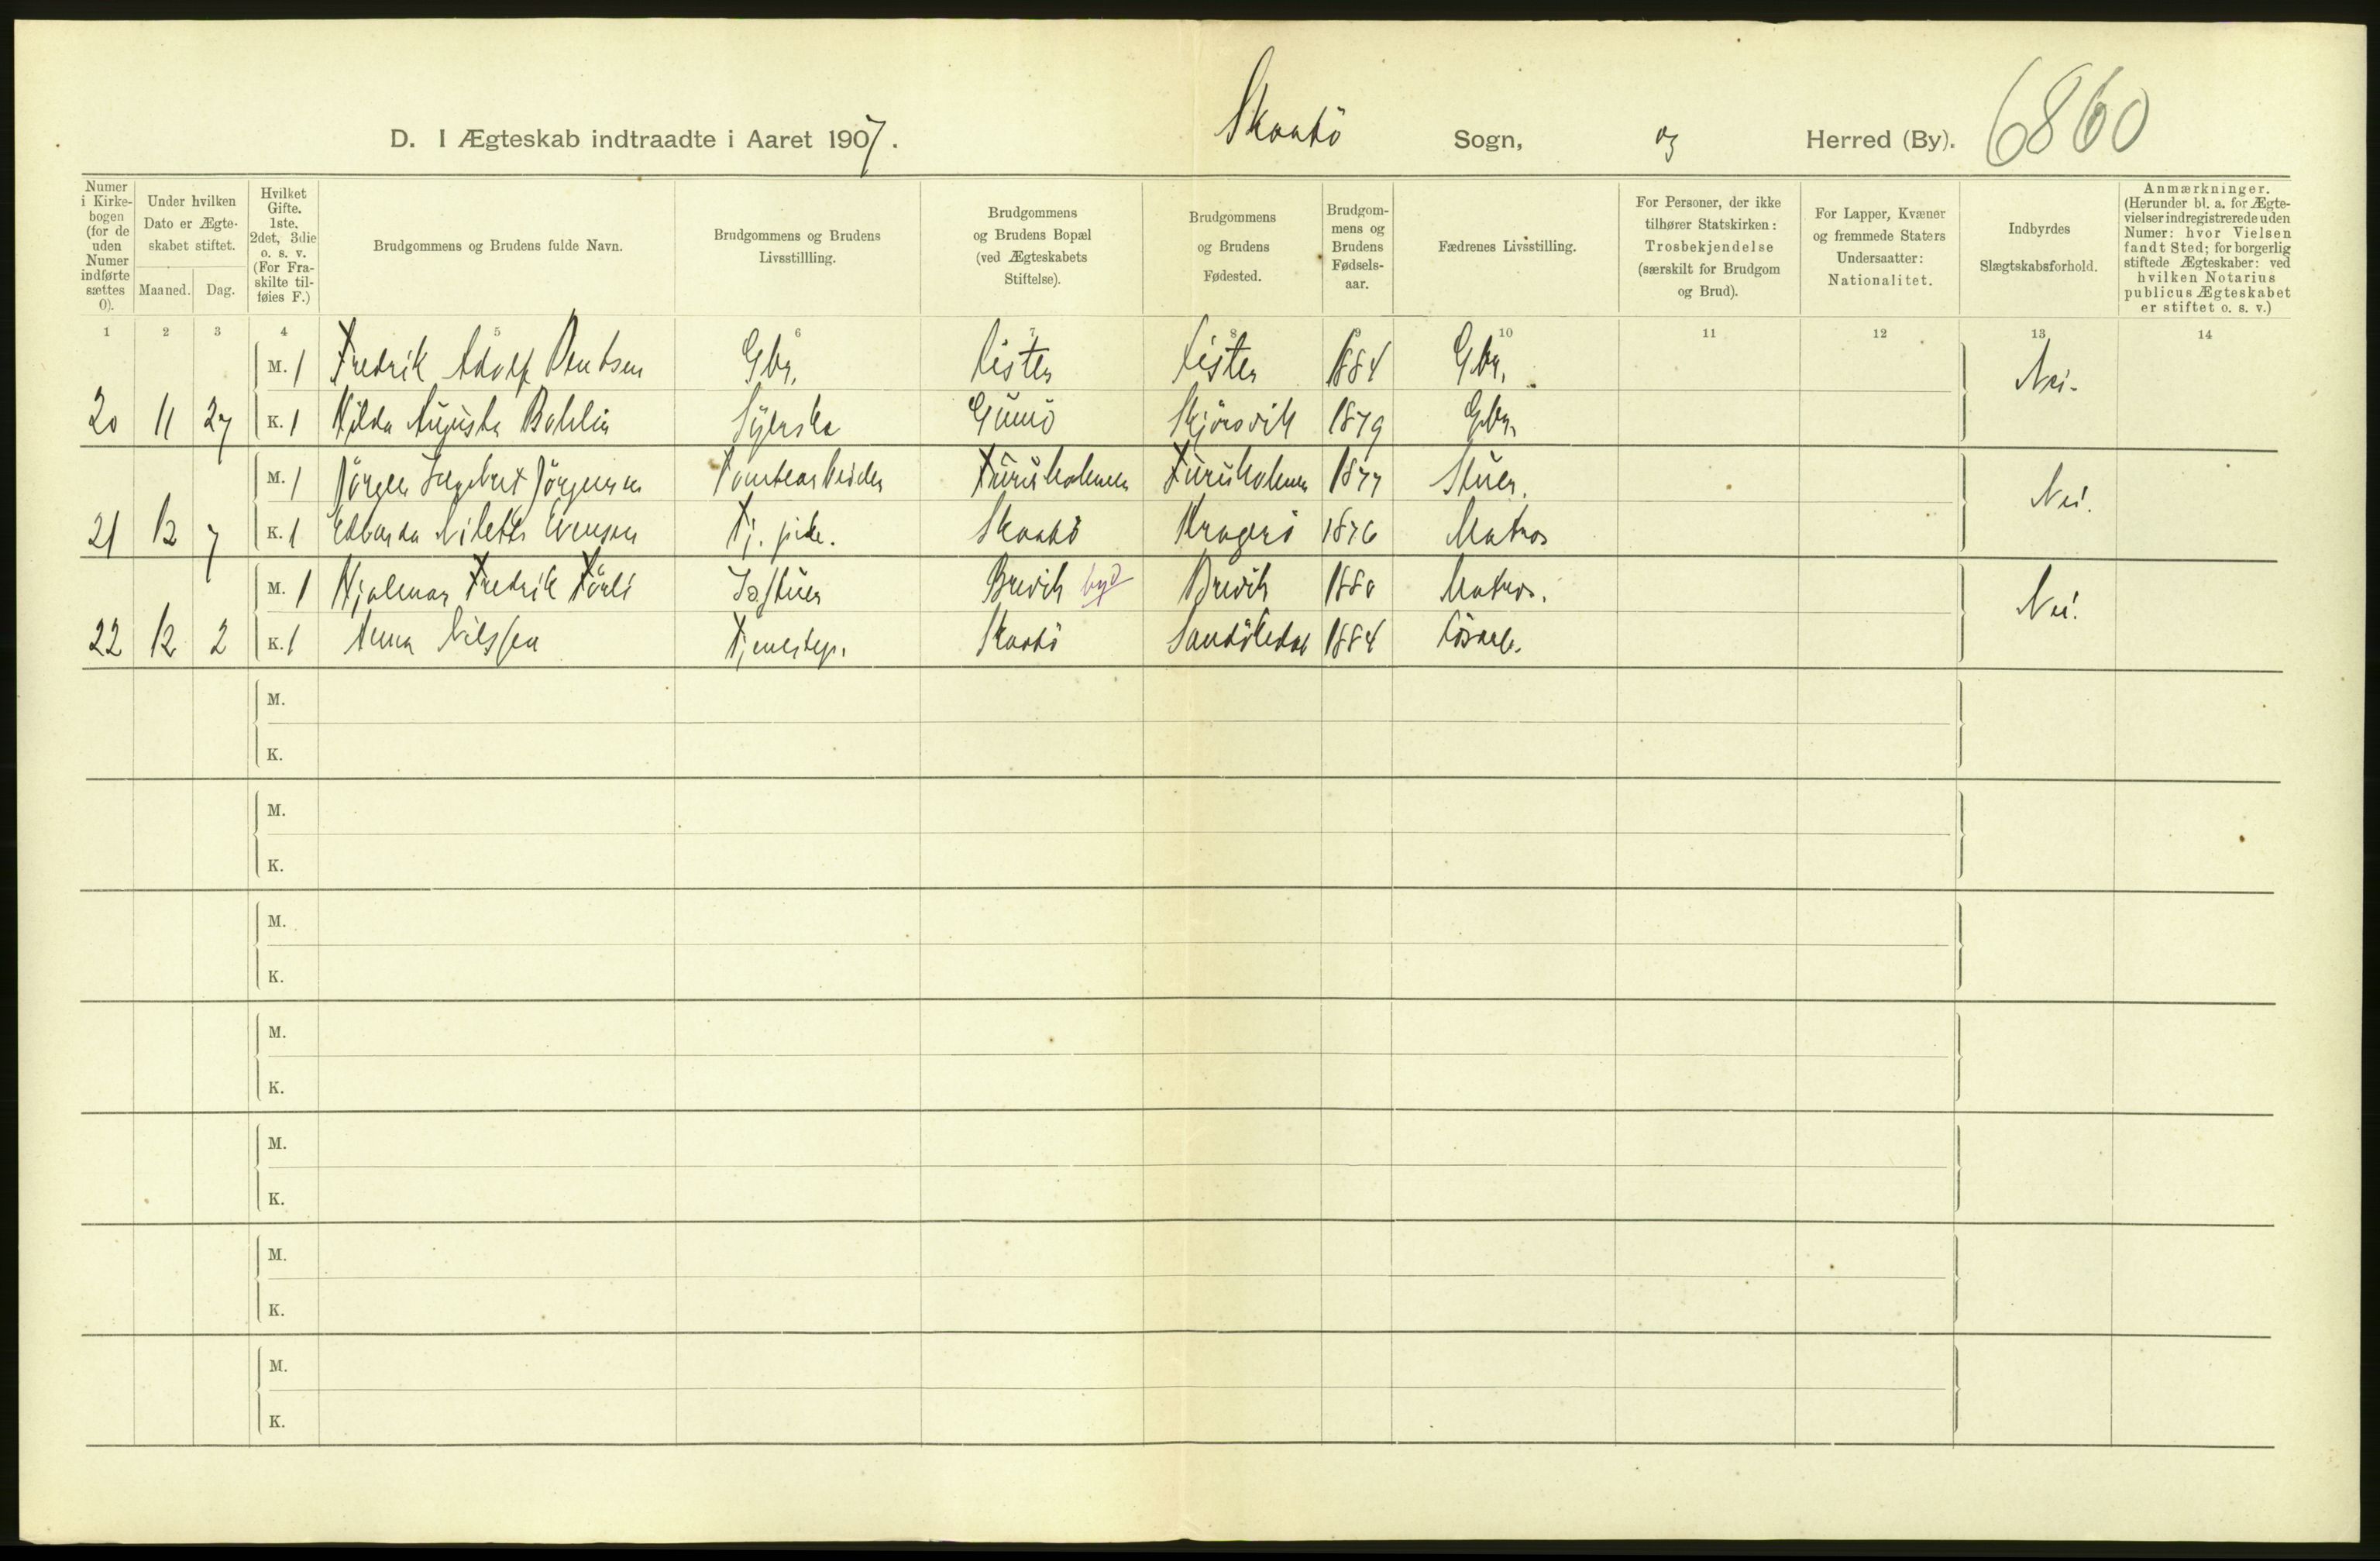 D. I Ægteskab indtraadte i Aaret 1907. Skaatö Sogn, og Herred (By). 6860
Numer i Kirke-bogen (for de uden Numer indførte sættes 0).
Under hvilken Dato er Ægte-skabet stiftet.
Maaned. Dag.
Hvilket Gifte. 1ste, 2det, 3die o. s. v. (For Fra-skilte til-føies F.)
Brudgommens og Brudens fulde Navn.
Brudgommens og Brudens Livsstillling.
Brudgommens og Brudens Bopæl (ved Ægteskabets Stiftelse).
Brudgommens og Brudens Fødested.
Brudgom-mens og Brudens Fødsels-aar.
Fædrenes Livsstilling.
For Personer, der ikke tilhører Statskirken: Trosbekjendelse (særskilt for Brudgom og Brud).
For Lapper, Kvæner og fremmede Staters Undersaatter: Nationalitet.
Indbyrdes Slægtskabsforhold.
Anmærkninger. (Herunder bl. a. for Ægte-vielser indregistrerede uden Numer: hvor Vielsen fandt Sted; for borgerlig stiftede Ægteskaber: ved hvilken Notarius publicus Ægteskabet er stiftet o. s. v.)
1 2 3 4 5 6 7 8 9 10 11 12 13 14
M. 1 Fredrik Adolf Gbr. Lister Lister 1884 Gbr. Nei.
20 11 27 K. 1 Hilda Augusta Syerske Gumö 1879 Gbr.
M. 1 Jörgen Ingebret Jörgensen Tomtearbeider Furuholmen Furuholmen 1877 Stuer. Nei.
21 12 7 K. 1 Evensen Tj. pike. Skaatö Kragerö 1876 Matros
M. 1 Hjalmar Fredrik Brevik by? Brevik 1880 Matros. Nei.
22 12 2 K. 1 Anna Nilssen Tjenestep. Skaatö Sandökedal 1884
M.
K.
M.
K.
M.
K.
M.
K.
M.
K.
M.
K.
M.
K.